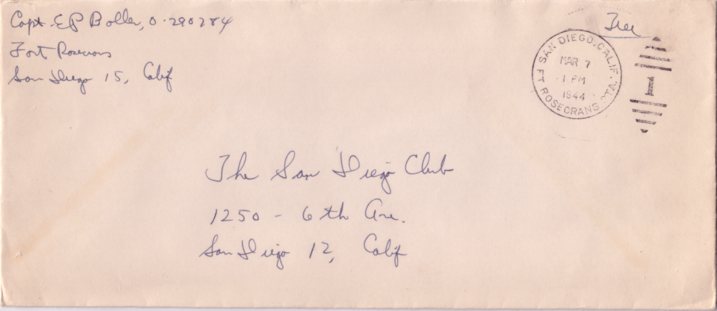 Capt. E P Boller, O-290284
Fort Rosecrans
San Diego 15, Calif
Free
SAN DIEGO, CALIF.
MAR 7
1 PM
1944
FT. ROSECRANS STA.
1
The San Diego Club
1250 - 6th Ave.
San Diego 12, Calif